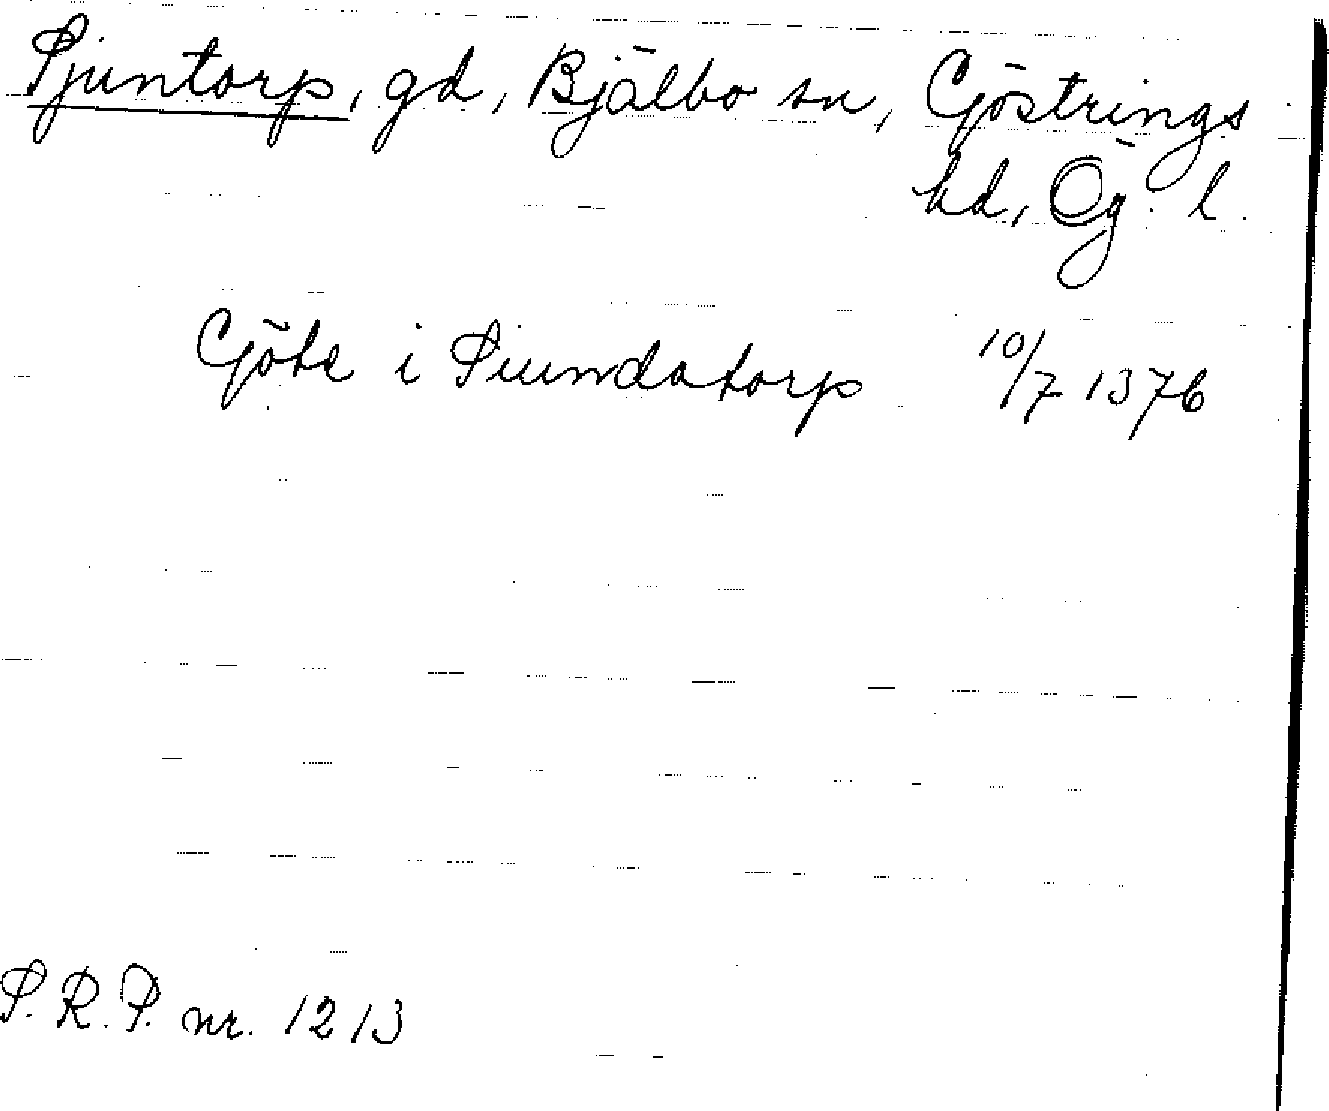 Sjuntorp, gd, Bjälbo sn, Göstrings
hd, Ög. l.
Göte i Siundatorp 10/7 1376
S.R.P. nr. 1213